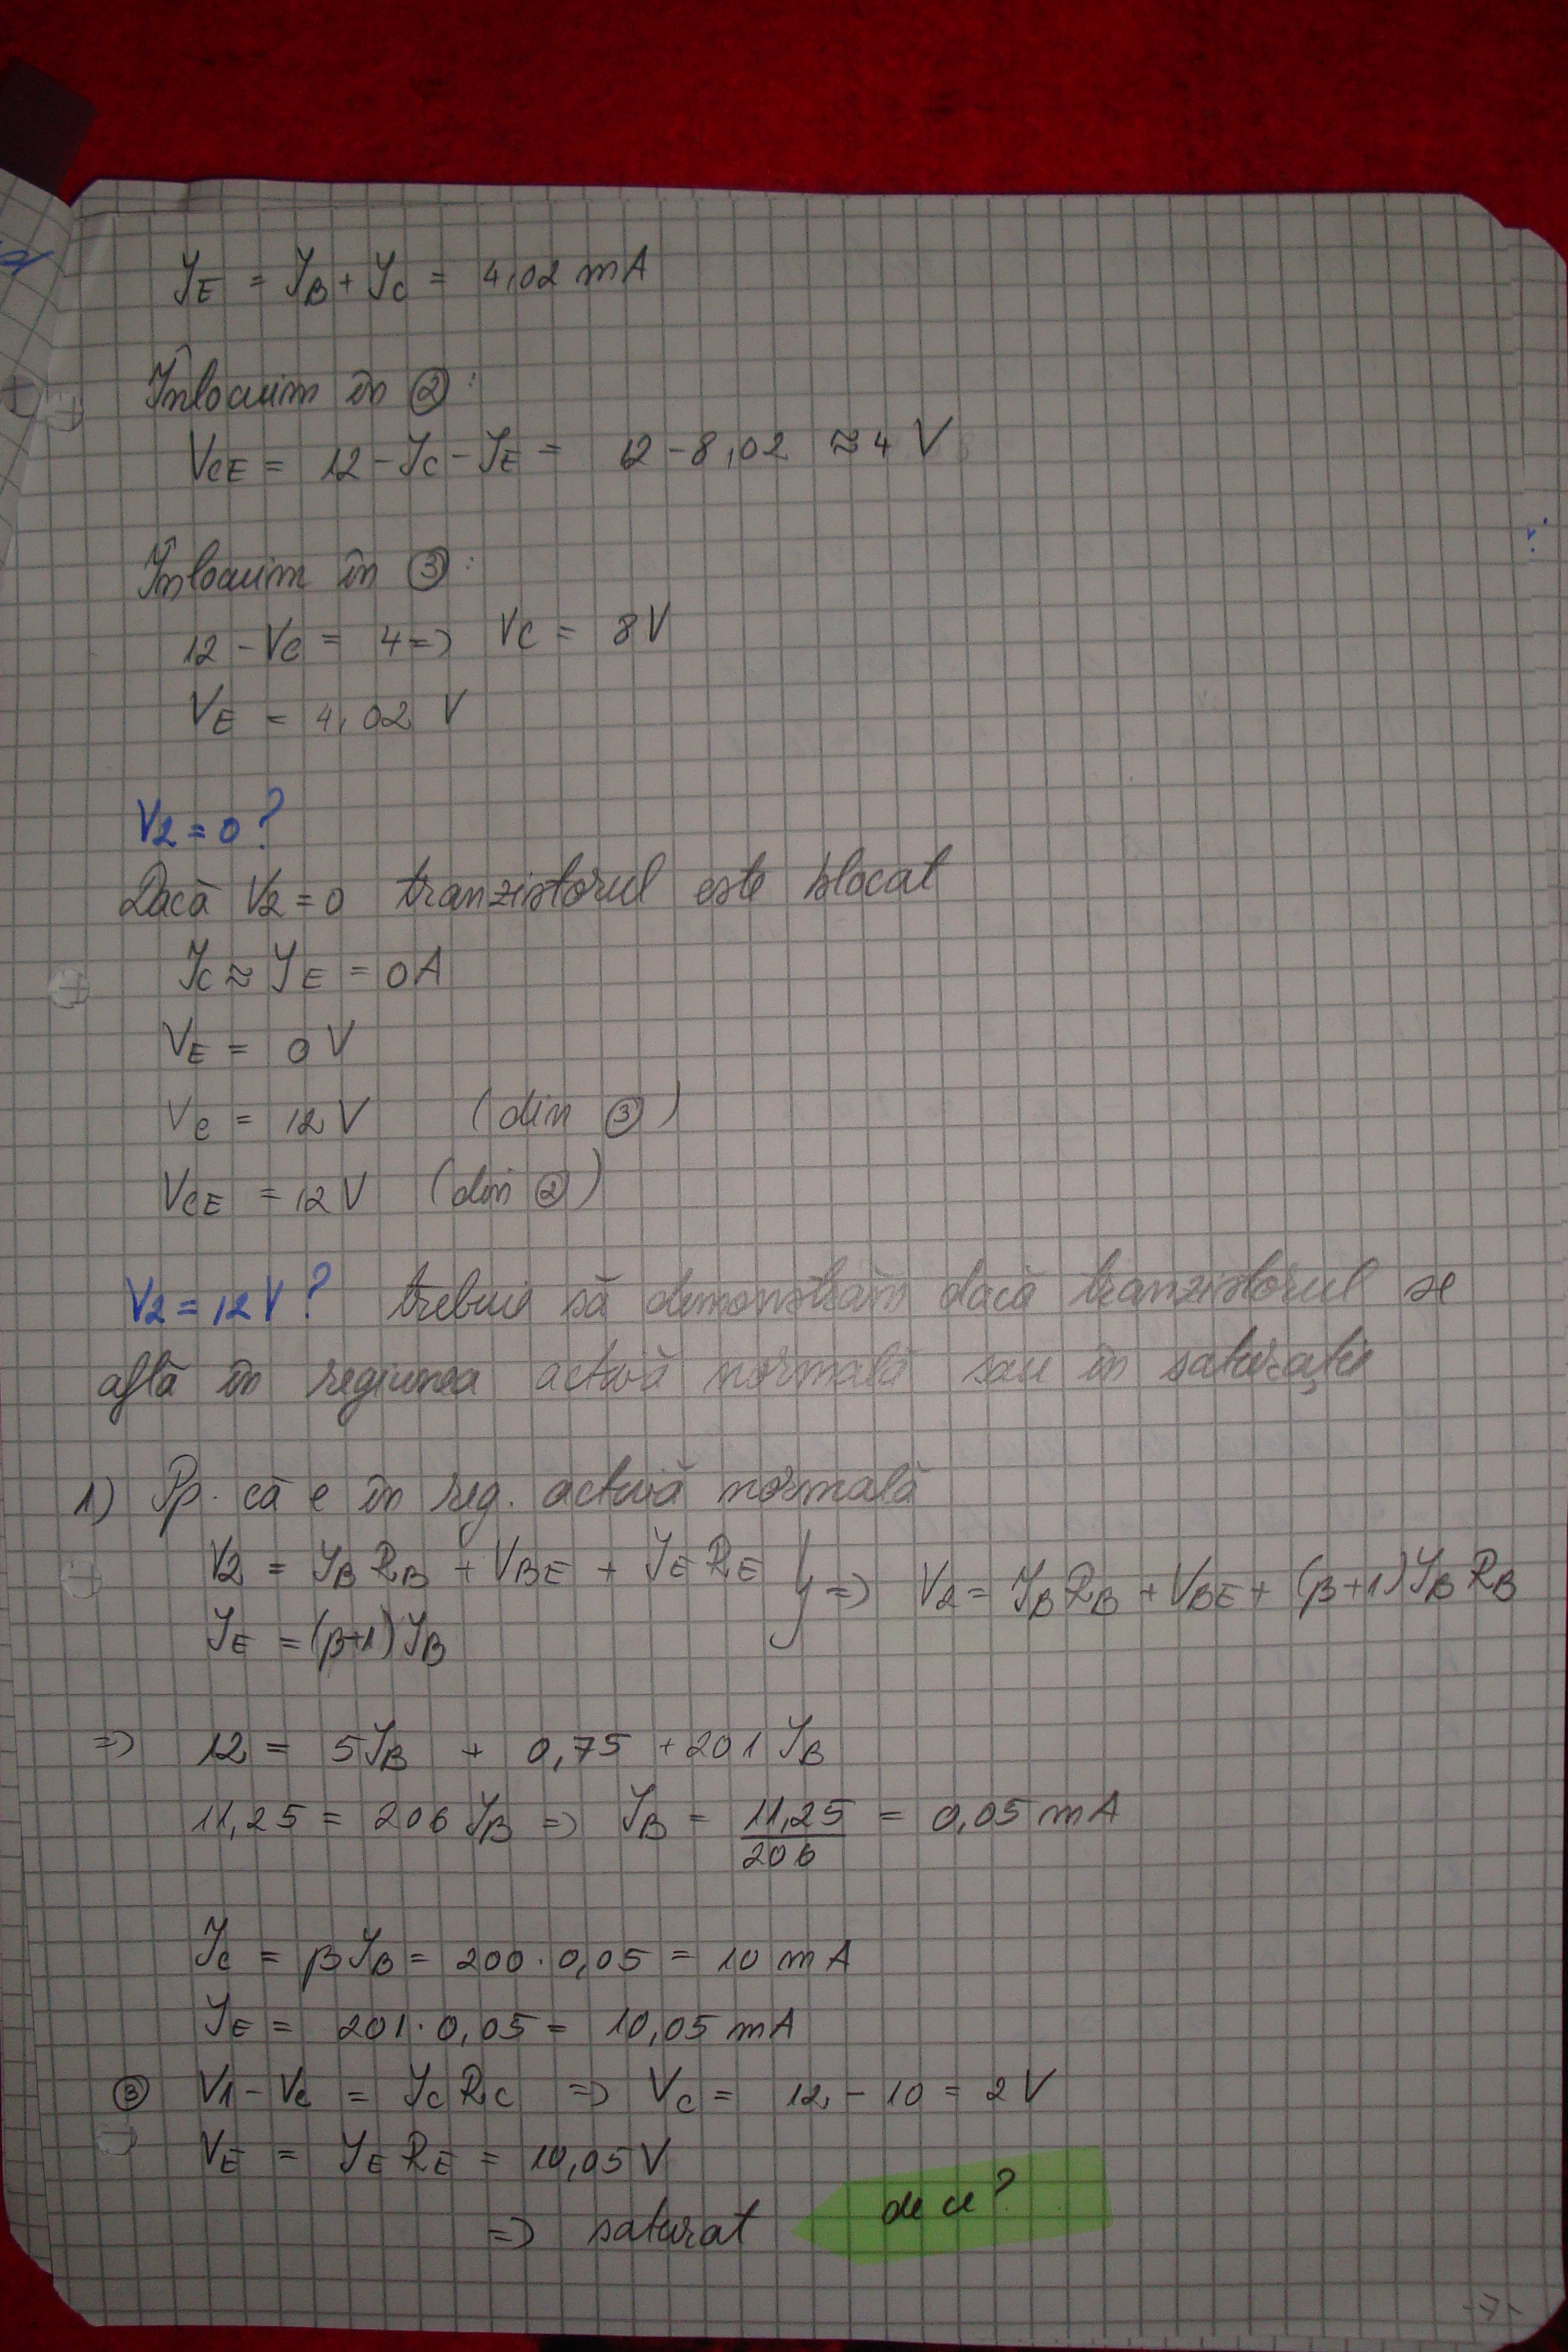 IE = IB + IC = 4,02 mA
Înlocuim în ②:
VCE = 12 - IC - IE = 12 - 8,02 ≈ 4 V
Înlocuim în ③:
12 - VC = 4 => VC = 8V
VE = 4,02 V
V2 = 0?
Dacă V2 = 0 tranzistorul este blocat
IC ≈ IE = 0A
VE = 0 V
VC = 12 V (din ③)
VCE = 12 V (din ②)
V2 = 12 V? trebuie să demonstrăm dacă tranzistorul se
află în regiunea activă normală sau în saturație
1) Pp. că e în reg. activă normală
V2 = IB RB + VBE + IE RE } => V2 = IB RB + VBE + (β+1) IB RB
IE = (β+1) IB
=> 12 = 5 IB + 0,75 + 201 IB
11,25 = 206 IB => IB = 11,25/206 = 0,05 mA
IC = β IB = 200 · 0,05 = 10 mA
IE = 201 · 0,05 = 10,05 mA
③ V1 - VC = IC RC => VC = 12 - 10 = 2 V
VE = IE RE = 10,05 V
=> saturat de ce?
-7-